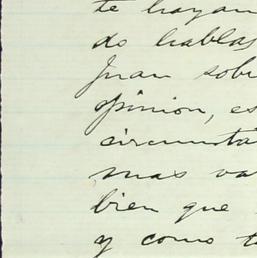 te hayan
do hablas
Juan sob
opinion, es
circunsta
mas va
bien que
y como t